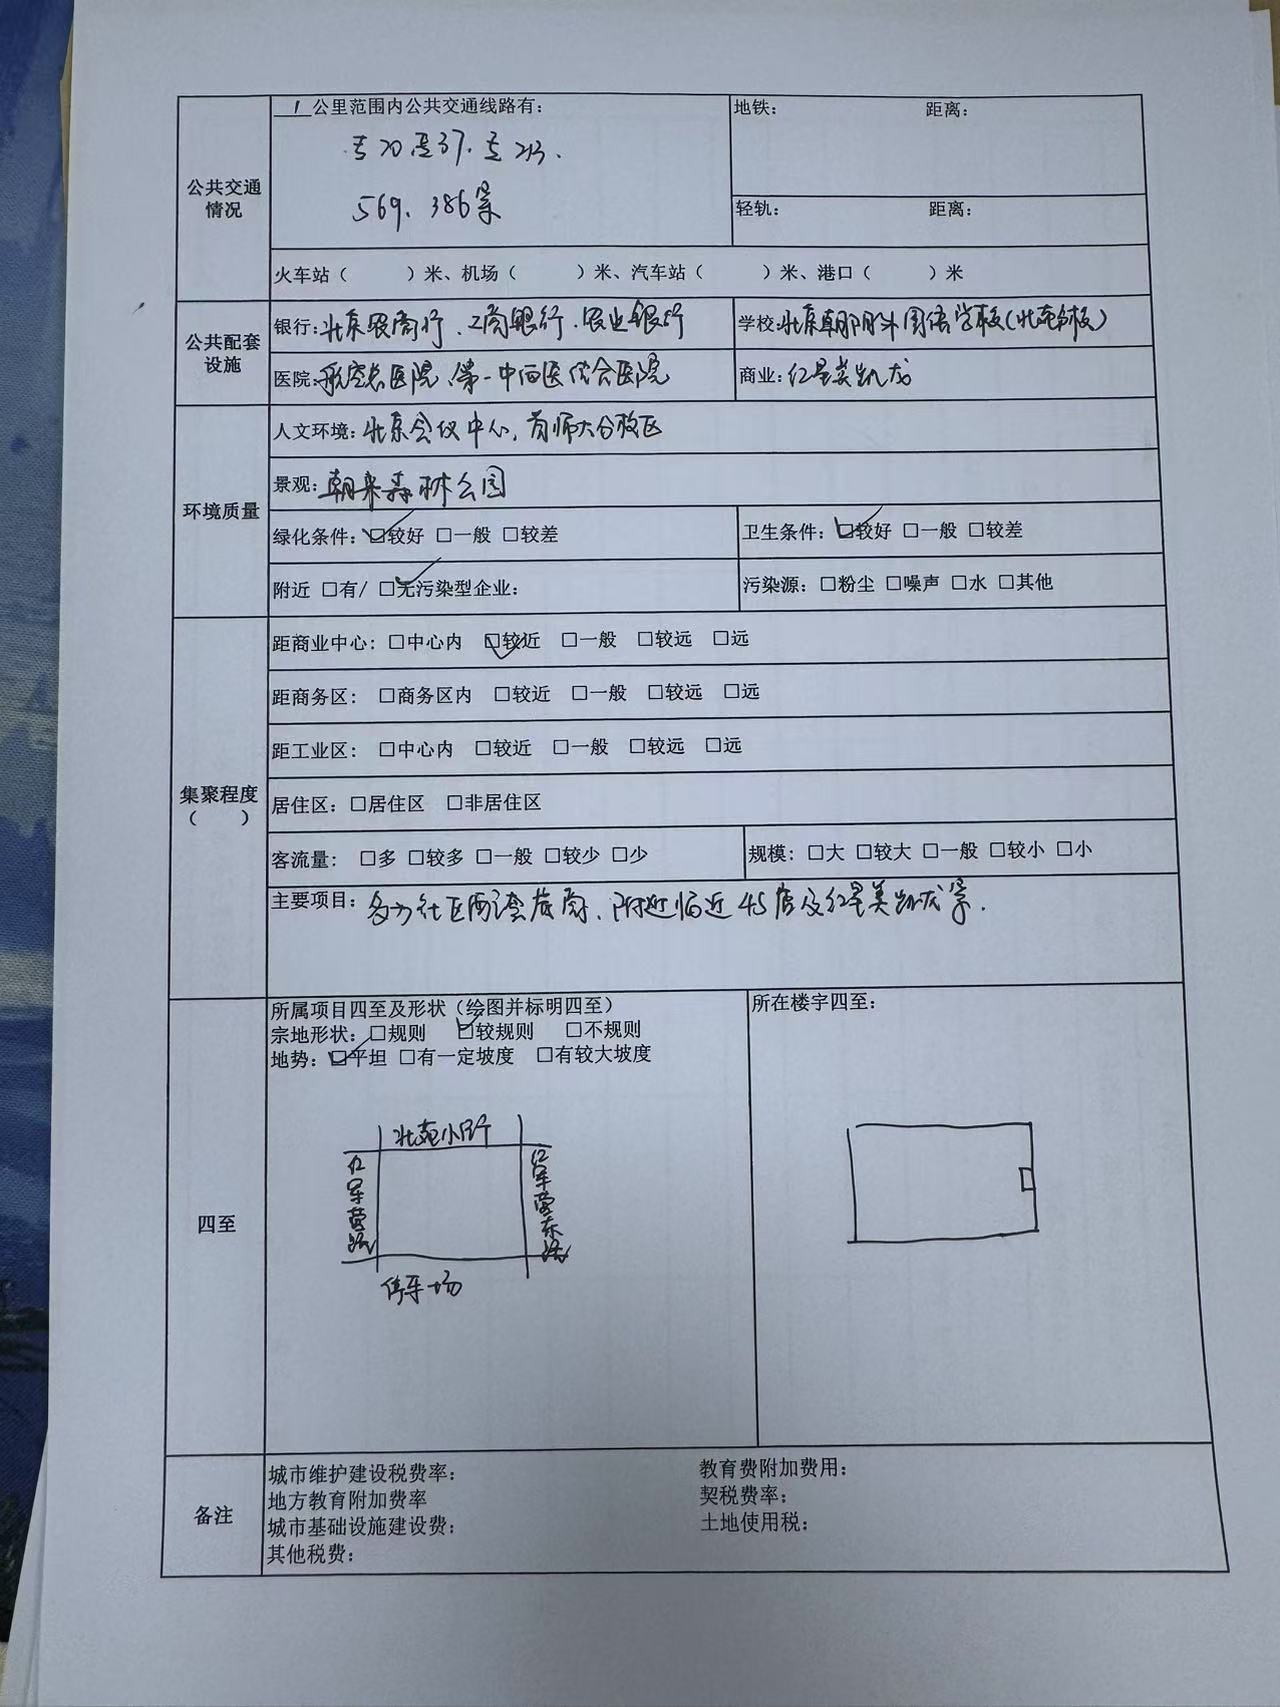 公共交通情况
1 公里范围内公共交通线路有:
专20 专37、专213、
569、386等
地铁: 距离:
轻轨: 距离:
火车站( )米、机场( )米、汽车站( )米、港口( )米
公共配套设施
银行:北京农商行、工商银行、农业银行
学校:北京朝阳外国语学校(北苑分校)
医院:航空总医院、第一中西医结合医院
商业:红星美凯龙
环境质量
人文环境:北京会议中心,首师大分校区
景观:朝来森林公园
绿化条件:☑较好 □一般 □较差
卫生条件:☑较好 □一般 □较差
附近 □有/ ☑无污染型企业:
污染源:□粉尘 □噪声 □水 □其他
集聚程度
( )
距商业中心:□中心内 ☑较近 □一般 □较远 □远
距商务区: □商务区内 □较近 □一般 □较远 □远
距工业区: □中心内 □较近 □一般 □较远 □远
居住区:□居住区 □非居住区
客流量: □多 □较多 □一般 □较少 □少
规模:□大 □较大 □一般 □较小 □小
主要项目:多为社区配套底商、附近临近4S店及红星美凯龙等.
四至
所属项目四至及形状(绘图并标明四至)
宗地形状:□规则 ☑较规则 □不规则
地势:☑平坦 □有一定坡度 □有较大坡度
北苑小街
红军营路
红军营东路
停车场
所在楼宇四至:
备注
城市维护建设税费率:
教育费附加费用:
地方教育附加费率
契税费率:
城市基础设施建设费:
土地使用税:
其他税费: